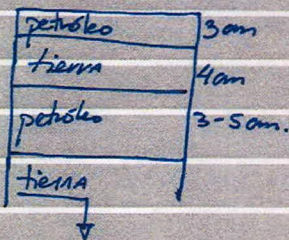 petróleo 3 cm
tierra 4 cm
petróleo 3-5 cm.
tierra